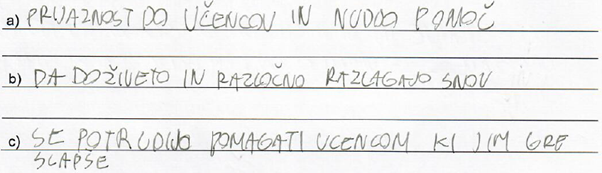 a) PRIJAZNOST DO UČENCOV IN NUDIJO POMOČ
b) DA DOŽIVETO IN RAZLOČNO RAZLAGAJO SNOV
c) SE POTRUDIJO POMAGATI UCENCOM KI JIM GRE
SLAPŠE